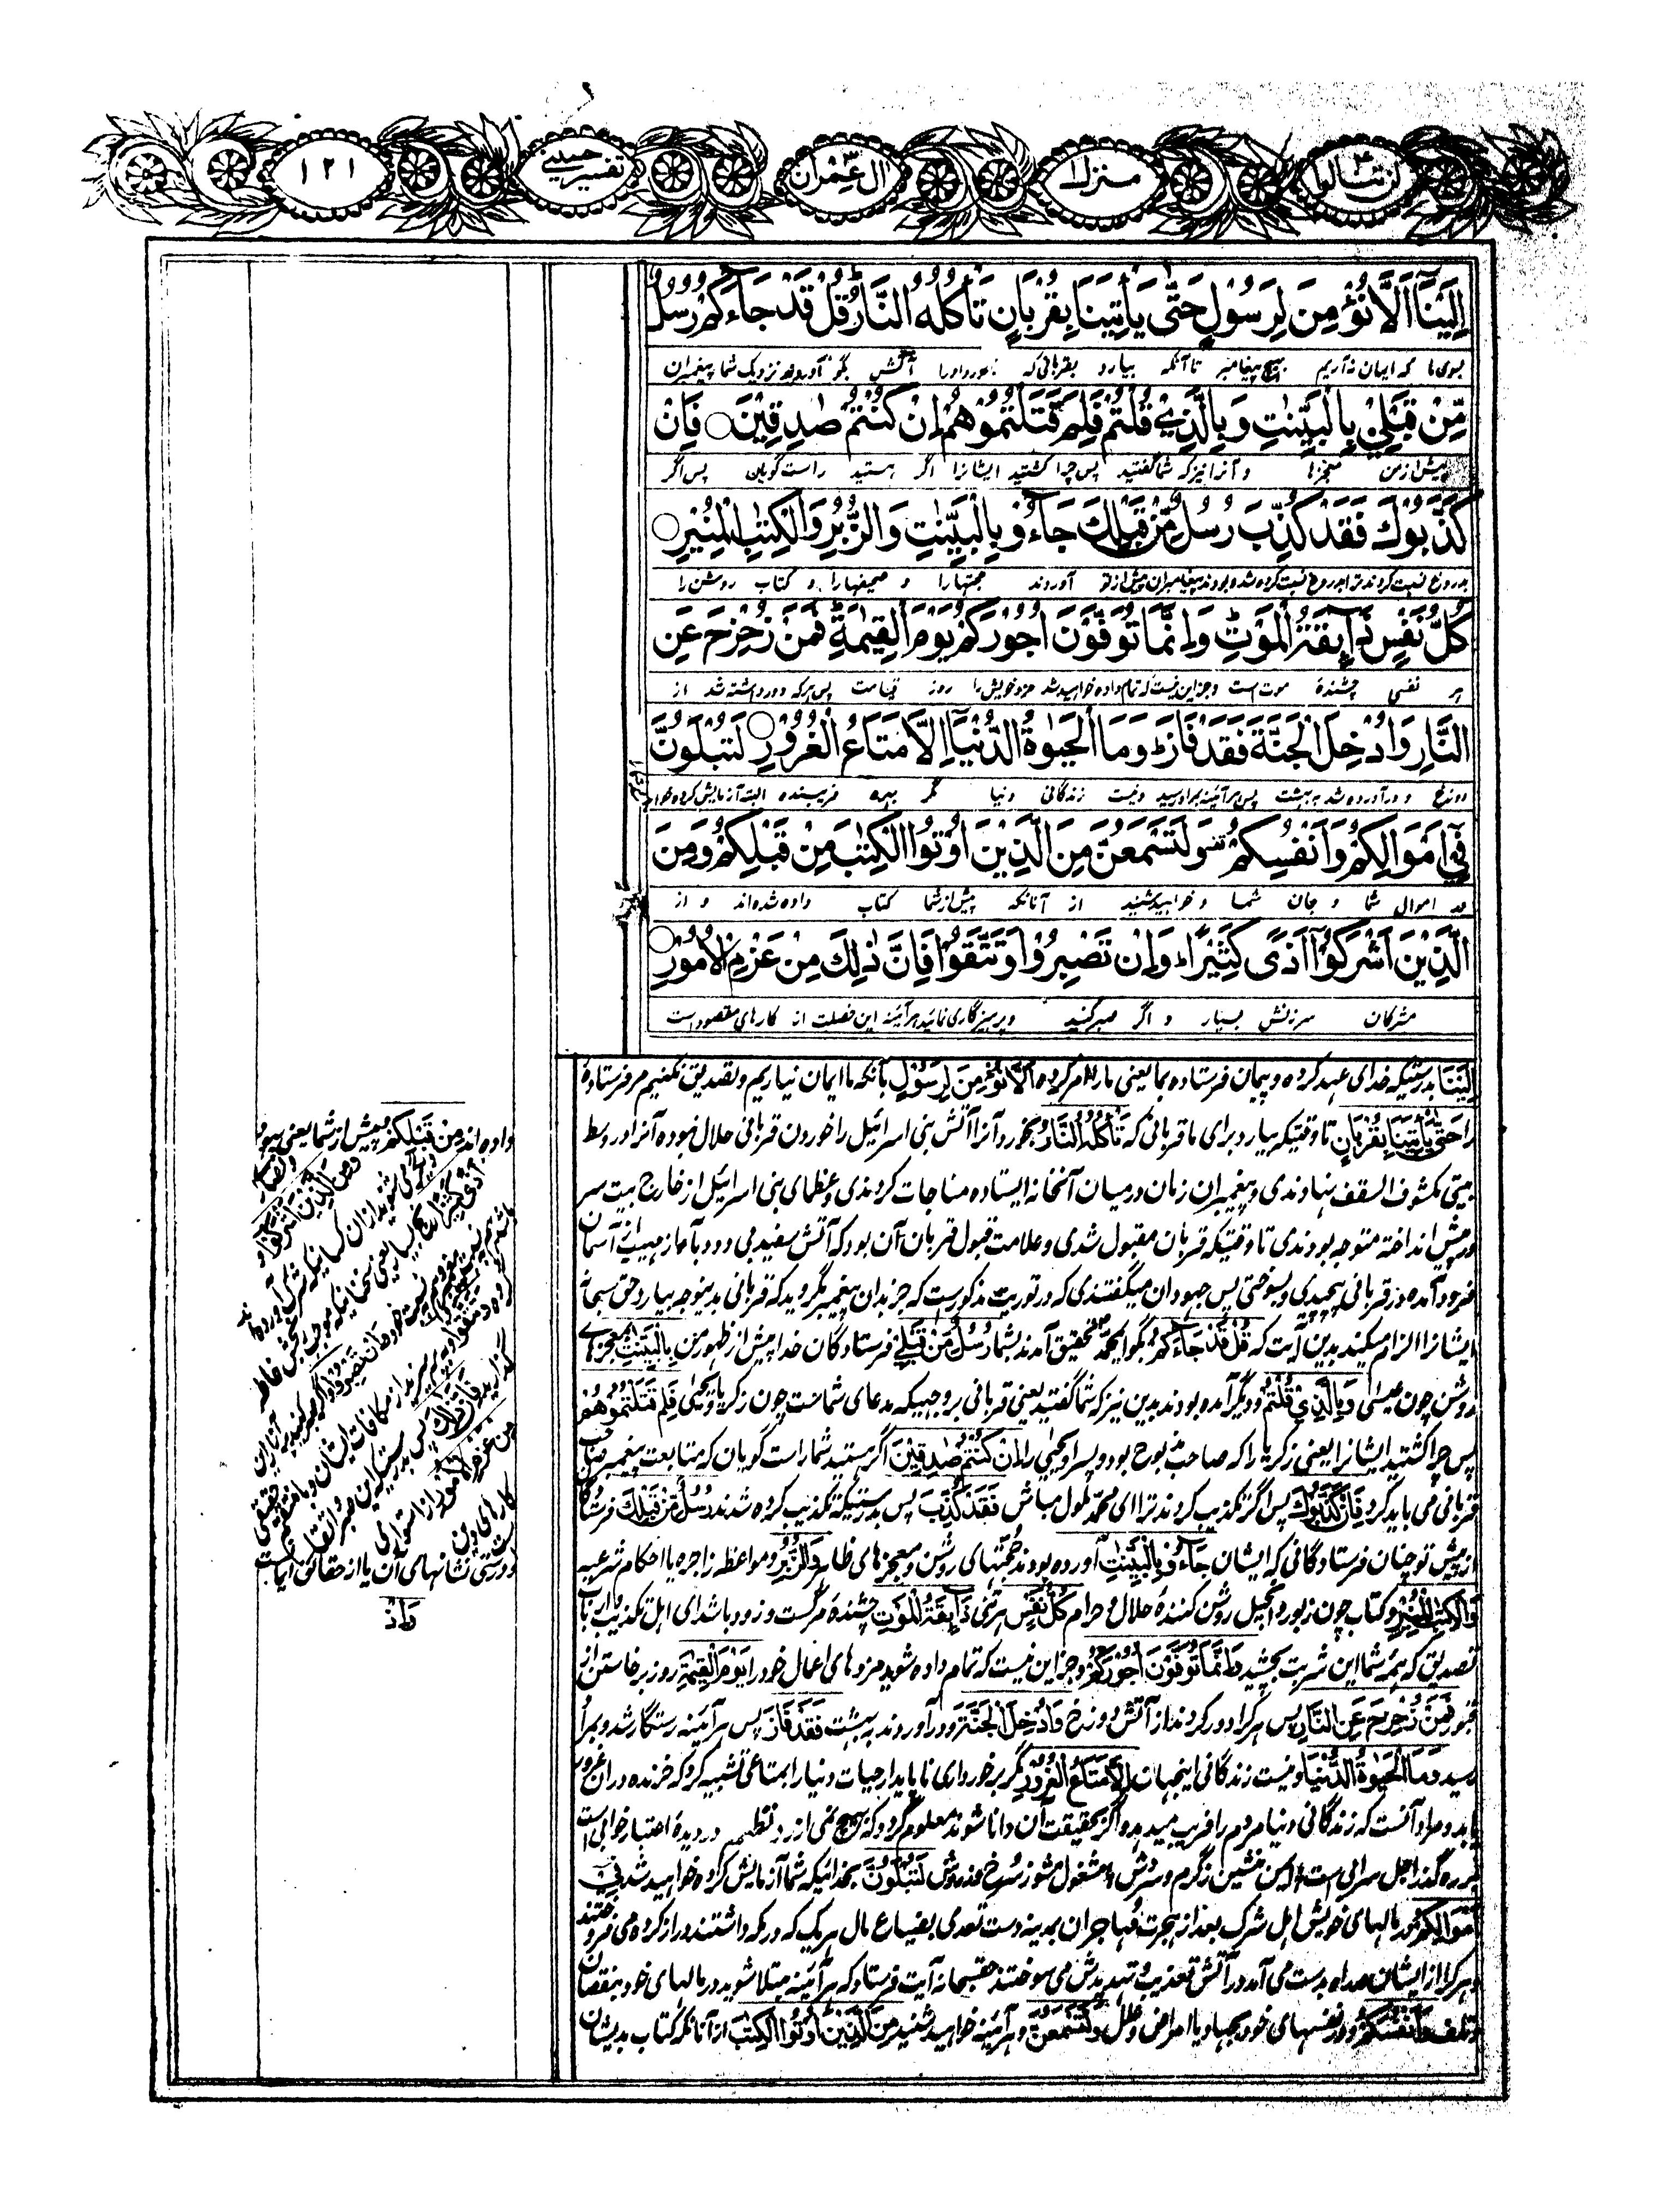 لن تنالوا ٤
منزل ١
آل عمران ٣
تفسیر حسینی
١٢١
اِلَیْنَاۤ اَلَّا نُؤْمِنَ لِرَسُوْلٍ حَتّٰی یَاْتِیَنَا بِقُرْبَانٍ تَاْكُلُهُ النَّارُ قُلْ قَدْ جَآءَكُمْ رُسُلٌ
بسوی ما که ایمان نه آریم هیچ پیغامبر تا آنکه بیارد بقربانی که بخورد اورا آتش بگو آوردند نزدیک شما پیغمبران
مِّنْ قَبْلِیْ بِالْبَیِّنٰتِ وَبِالَّذِیْ قُلْتُمْ فَلِمَ قَتَلْتُمُوْهُمْ اِنْ كُنْتُمْ صٰدِقِیْنَ ○ فَاِنْ
پیش از من معجزها و آنرا نیز که شما گفتید پس چرا کشتید ایشانرا اگر هستید راست گویان پس اگر
كَذَّبُوْكَ فَقَدْ كُذِّبَ رُسُلٌ مِّنْ قَبْلِكَ جَآءُوْ بِالْبَیِّنٰتِ وَالزُّبُرِ وَالْكِتٰبِ الْمُنِیْرِ ○
بدروغ نسبت کردند ترا بدروغ نسبت کرده شده بودند پیغامبران پیش از تو آوردند حجتها را و صحیفها را و کتاب روشن را
كُلُّ نَفْسٍ ذَآىِٕقَةُ الْمَوْتِ وَاِنَّمَا تُوَفَّوْنَ اُجُوْرَكُمْ یَوْمَ الْقِیٰمَةِ فَمَنْ زُحْزِحَ عَنِ
هر نفسی چشندهٔ موت است و جز این نیست که تمام داده خواهید شد مزد خویش را روز قیامت پس هر که دور داشته شد از
النَّارِ وَاُدْخِلَ الْجَنَّةَ فَقَدْ فَازَ وَمَا الْحَیٰوةُ الدُّنْیَاۤ اِلَّا مَتَاعُ الْغُرُوْرِ ○ لَتُبْلَوُنَّ
دوزخ و درآورده شد به بهشت پس هر آئینه بمراد رسید و نیست زندگانی دنیا مگر بهره فریبنده البته آزمایش کرده خواهید
فِیْۤ اَمْوَالِكُمْ وَاَنْفُسِكُمْ وَلَتَسْمَعُنَّ مِنَ الَّذِیْنَ اُوْتُوا الْكِتٰبَ مِنْ قَبْلِكُمْ وَمِنَ
در اموال شما و جان شما و خواهید شنید از آنانکه پیش از شما کتاب داده شده اند و از
الَّذِیْنَ اَشْرَكُوْۤا اَذًی كَثِیْرًا وَاِنْ تَصْبِرُوْا وَتَتَّقُوْا فَاِنَّ ذٰلِكَ مِنْ عَزْمِ الْاُمُوْرِ ○
مشرکان سرزنش بسیار و اگر صبر کنید و پرهیزگاری نمائید هر آئینه این خصلت از کارهای مقصود است
اِلَیْنَا بدرستیکه خدای عهد کرده و پیمان فرستاده بما یعنی ما را امر کرده اَلَّا نُؤْمِنَ لِرَسُوْلٍ بآنکه ما ایمان نیاریم و تصدیق نکنیم مر فرستادهٔ
را حَتّٰی یَاْتِیَنَا بِقُرْبَانٍ تا وقتیکه بیارد برای ما قربانی که تَاْكُلُهُ النَّارُ بخورد آنرا آتش بنی اسرائیل را خوردن قربانی حلال نبوده آنرا در وسط
بیتی مکشوف السقف بنهاوندی و پیغمبران زمان درمیان آنخانه ایستاده مناجات کردندی و عظمای بنی اسرائیل از خارج بیت سر
در پیش انداخته متوجه بودندی تا وقتیکه قربان مقبول شدی و علامت قبول قربان آن بود که آتش سفید بی دود بآواز مهیب از آسمان
فرود آمده در قربانی پیچیدی و بسوختی پس جهودان میگفتندی که در توریت مذکورست که جز بدان پیغمبر نگروید که قربانی بدینوجه بیارد حق سبحانه
ایشانرا الزام میکند بدین آیت که قُلْ قَدْ جَآءَكُمْ بگو ای محمد تحقیق آمدند بشما رُسُلٌ مِّنْ قَبْلِیْ فرستادگان خدا پیش از ظهور من بِالْبَیِّنٰتِ بمعجزهای
روشن چون عیسی وَبِالَّذِیْ قُلْتُمْ و دیگر آمده بودند بدین نیز که شما گفتید یعنی قربانی بروجهیکه مدعای شماست چون زکریا و یحیی فَلِمَ قَتَلْتُمُوْهُمْ
پس چرا کشتید ایشانرا یعنی زکریا را که صاحب مذبوح بود و پسر او یحیی را اِنْ كُنْتُمْ صٰدِقِیْنَ اگر هستید شما راست گویان که متابعت پیغمبر صاحب
قربانی می باید کرد فَاِنْ كَذَّبُوْكَ پس اگر تکذیب کردند ترا ای محمد ملول مباش فَقَدْ كُذِّبَ پس بدرستیکه تکذیب کرده شدند رُسُلٌ مِّنْ قَبْلِكَ فرستادگان
از پیش تو چنان فرستادگانی که ایشان جَآءُوْ بِالْبَیِّنٰتِ آورده بودند حجتهای روشن و معجزهای ظاهر وَالزُّبُرِ و مواعظ زاجره یا احکام شرعیه
وَالْكِتٰبِ الْمُنِیْرِ و کتاب چون زبور و انجیل روشن کنندهٔ حلال و حرام كُلُّ نَفْسٍ هر تنی ذَآىِٕقَةُ الْمَوْتِ چشنده مرگست و زود باشد ای اهل تکذیب و ای ارباب
تصدیق که همه شما این شربت بچشید وَاِنَّمَا تُوَفَّوْنَ اُجُوْرَكُمْ و جز این نیست که تمام داده شوید مزدهای اعمال خود را یَوْمَ الْقِیٰمَةِ روز برخاستن از
قبور فَمَنْ زُحْزِحَ عَنِ النَّارِ پس هر کرا دور کردند از آتش دوزخ وَاُدْخِلَ الْجَنَّةَ و درآوردند به بهشت فَقَدْ فَازَ پس هر آئینه رستگار شد و بمراد
رسید وَمَا الْحَیٰوةُ الدُّنْیَا و نیست زندگانی اینجهان اِلَّا مَتَاعُ الْغُرُوْرِ مگر برخورداری ناپایدار حیات دنیا را بمتاعی تشبیه کرد که خرنده در آن غرور
یابد و مراد آنست که زندگانی دنیا مردم را فریب میدهد و اگر بحقیقت آن دانا شوند معلوم گردد که هیچ نمی ارزد نظم در دیدهٔ اعتبار خوابی است
بر رهگذر اجل سرابی است ایمن منشین ز گرم و سردش مشغول مشو ز سرخ و زردش لَتُبْلَوُنَّ بخدائیکه شما آزمایش کرده خواهید شد فِیْۤ
اَمْوَالِكُمْ در مالهای خویش اهل شرک بعد از هجرت مهاجران بمدینه دست تعدی بضیاع مال هریک که در مکه داشتند دراز کرده می فروختند
و هر کرا از ایشان بدست می آمد در آتش تعذیب و تهدیدش می سوختند حق سبحانه آیت فرستاد که هر آئینه مبتلا شوید در مالهای خود بنقصان
و تلف وَاَنْفُسِكُمْ و در نفسهای خود بجهاد یا امراض و علل وَلَتَسْمَعُنَّ و هر آئینه خواهید شنید مِنَ الَّذِیْنَ اُوْتُوا الْكِتٰبَ از آنانکه کتاب بدیشان
داده اند مِنْ قَبْلِكُمْ پیش از شما یعنی یهود
و نصاری
وَمِنَ الَّذِیْنَ اَشْرَكُوْا و
دیگر می شنوید از آن کسانیکه شرک آورده اند
اَذًی كَثِیْرًا رنج بسیار یعنی سخنانیکه موجب رنجش خاطر
وَاِنْ تَصْبِرُوْا و اگر صبر کنید بر آزار این
گروه وَتَتَّقُوْا و بپرهیزید از مکافات ایشان
گذارید فَاِنَّ ذٰلِكَ پس بدرستیکه این صبر و اتقا
مِنْ عَزْمِ الْاُمُوْرِ از استواری
کارهای دین
و درستی نشانهای آن یا از حقائق ایمانست
وَاِذْ